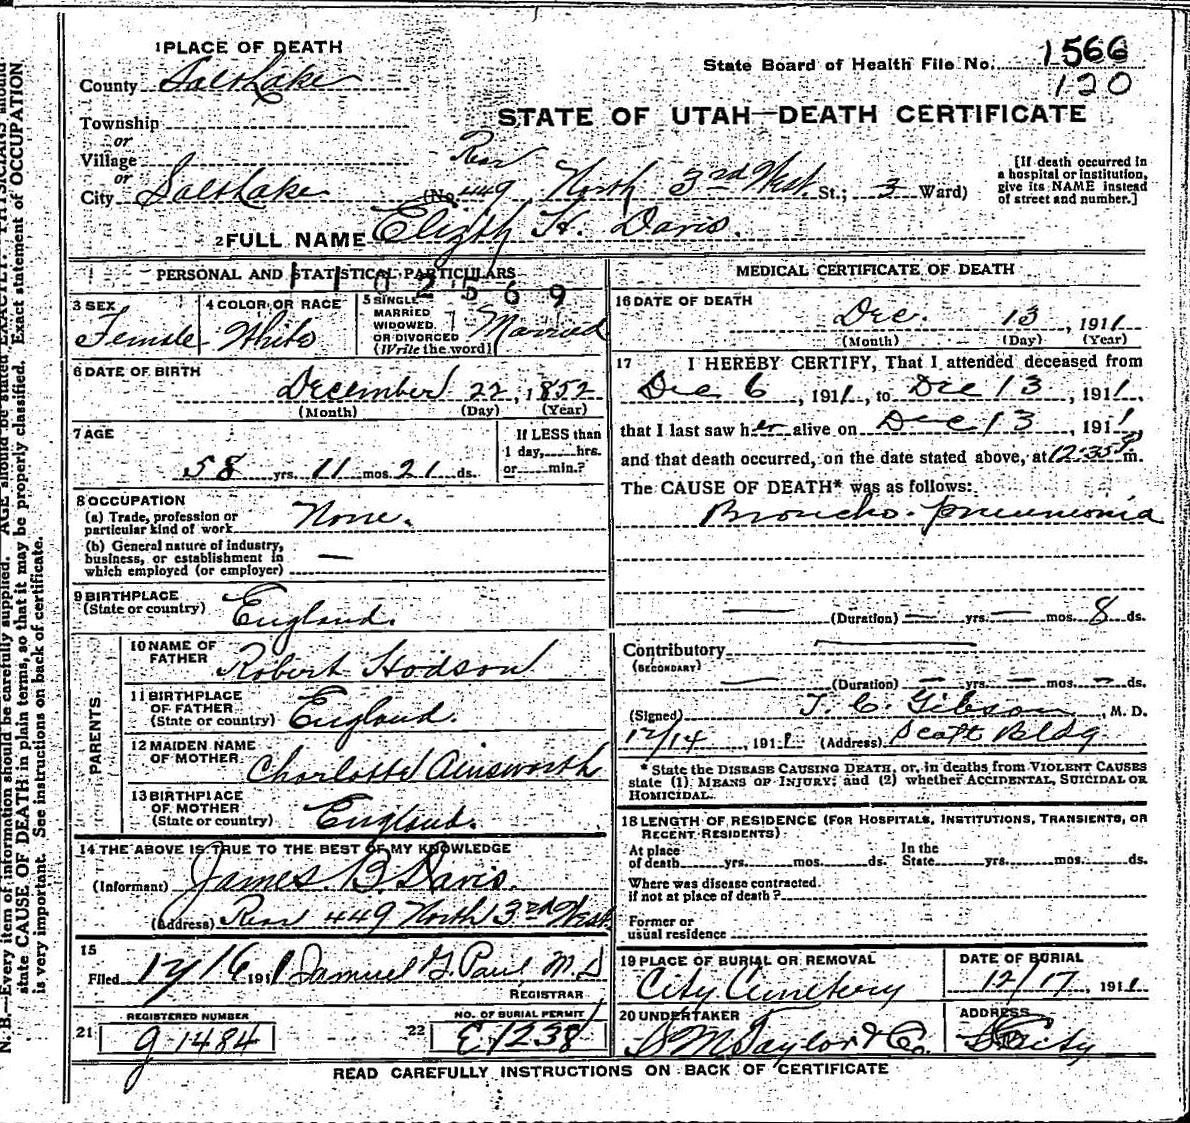 1 PLACE OF DEATH
County Salt Lake
Township
or
Village
or
City Salt Lake (No. Rear 449 North 3rd West St.; 3 Ward)
State Board of Health File No. 1566
120
STATE OF UTAH—DEATH CERTIFICATE
[If death occurred in
a hospital or institution,
give its NAME instead
of street and number.]
2 FULL NAME Elizth H. Davis.
PERSONAL AND STATISTICAL PARTICULARS
1102569
3 SEX Female
4 COLOR OR RACE White
5 SINGLE
MARRIED
WIDOWED
OR DIVORCED
(Write the word) Married
6 DATE OF BIRTH
December 22, 1852
(Month) (Day) (Year)
7 AGE
58 yrs. 11 mos. 21 ds.
If LESS than
1 day, hrs.
or min.?
8 OCCUPATION
(a) Trade, profession or
particular kind of work None.
(b) General nature of industry,
business, or establishment in
which employed (or employer) —
9 BIRTHPLACE
(State or country) England.
PARENTS
10 NAME OF
FATHER Robert Hodson
11 BIRTHPLACE
OF FATHER
(State or country) England.
12 MAIDEN NAME
OF MOTHER Charlotte Ainsworth
13 BIRTHPLACE
OF MOTHER
(State or country) England.
14 THE ABOVE IS TRUE TO THE BEST OF MY KNOWLEDGE
(Informant) James B. Davis.
(Address) Rear 449 North 3rd West.
15
Filed 12/16 1911 Samuel G. Paul, M.D
REGISTRAR
21 REGISTERED NUMBER
g 1484
22 NO. OF BURIAL PERMIT
E 1238
MEDICAL CERTIFICATE OF DEATH
16 DATE OF DEATH
Dec. 13, 1911
(Month) (Day) (Year)
17 I HEREBY CERTIFY, That I attended deceased from
Dec 6, 1911, to Dec 13, 1911,
that I last saw her alive on Dec 13, 1911,
and that death occurred, on the date stated above, at 12:35 P m.
The CAUSE OF DEATH* was as follows:
Broncho-pneumonia
— (Duration) — yrs. — mos. 8 ds.
Contributory —
(SECONDARY)
— (Duration) — yrs. — mos. — ds.
(Signed) T. C. Gibson, M. D.
12/14, 1911 (Address) Scott Bldg
* State the DISEASE CAUSING DEATH, or, in deaths from VIOLENT CAUSES
state (1) MEANS OF INJURY; and (2) whether ACCIDENTAL, SUICIDAL OR
HOMICIDAL.
18 LENGTH OF RESIDENCE (FOR HOSPITALS, INSTITUTIONS, TRANSIENTS, OR
RECENT RESIDENTS)
At place
of death yrs. mos. ds.
In the
State yrs. mos. ds.
Where was disease contracted
if not at place of death?
Former or
usual residence
19 PLACE OF BURIAL OR REMOVAL
City Cemetery
DATE OF BURIAL
12/17, 1911
20 UNDERTAKER
S M Taylor & Co.
ADDRESS
City
READ CAREFULLY INSTRUCTIONS ON BACK OF CERTIFICATE
N. B.—Every item of information should be carefully supplied. AGE should be stated EXACTLY. PHYSICIANS should
state CAUSE OF DEATH in plain terms, so that it may be properly classified. Exact statement of OCCUPATION
is very important. See instructions on back of certificate.